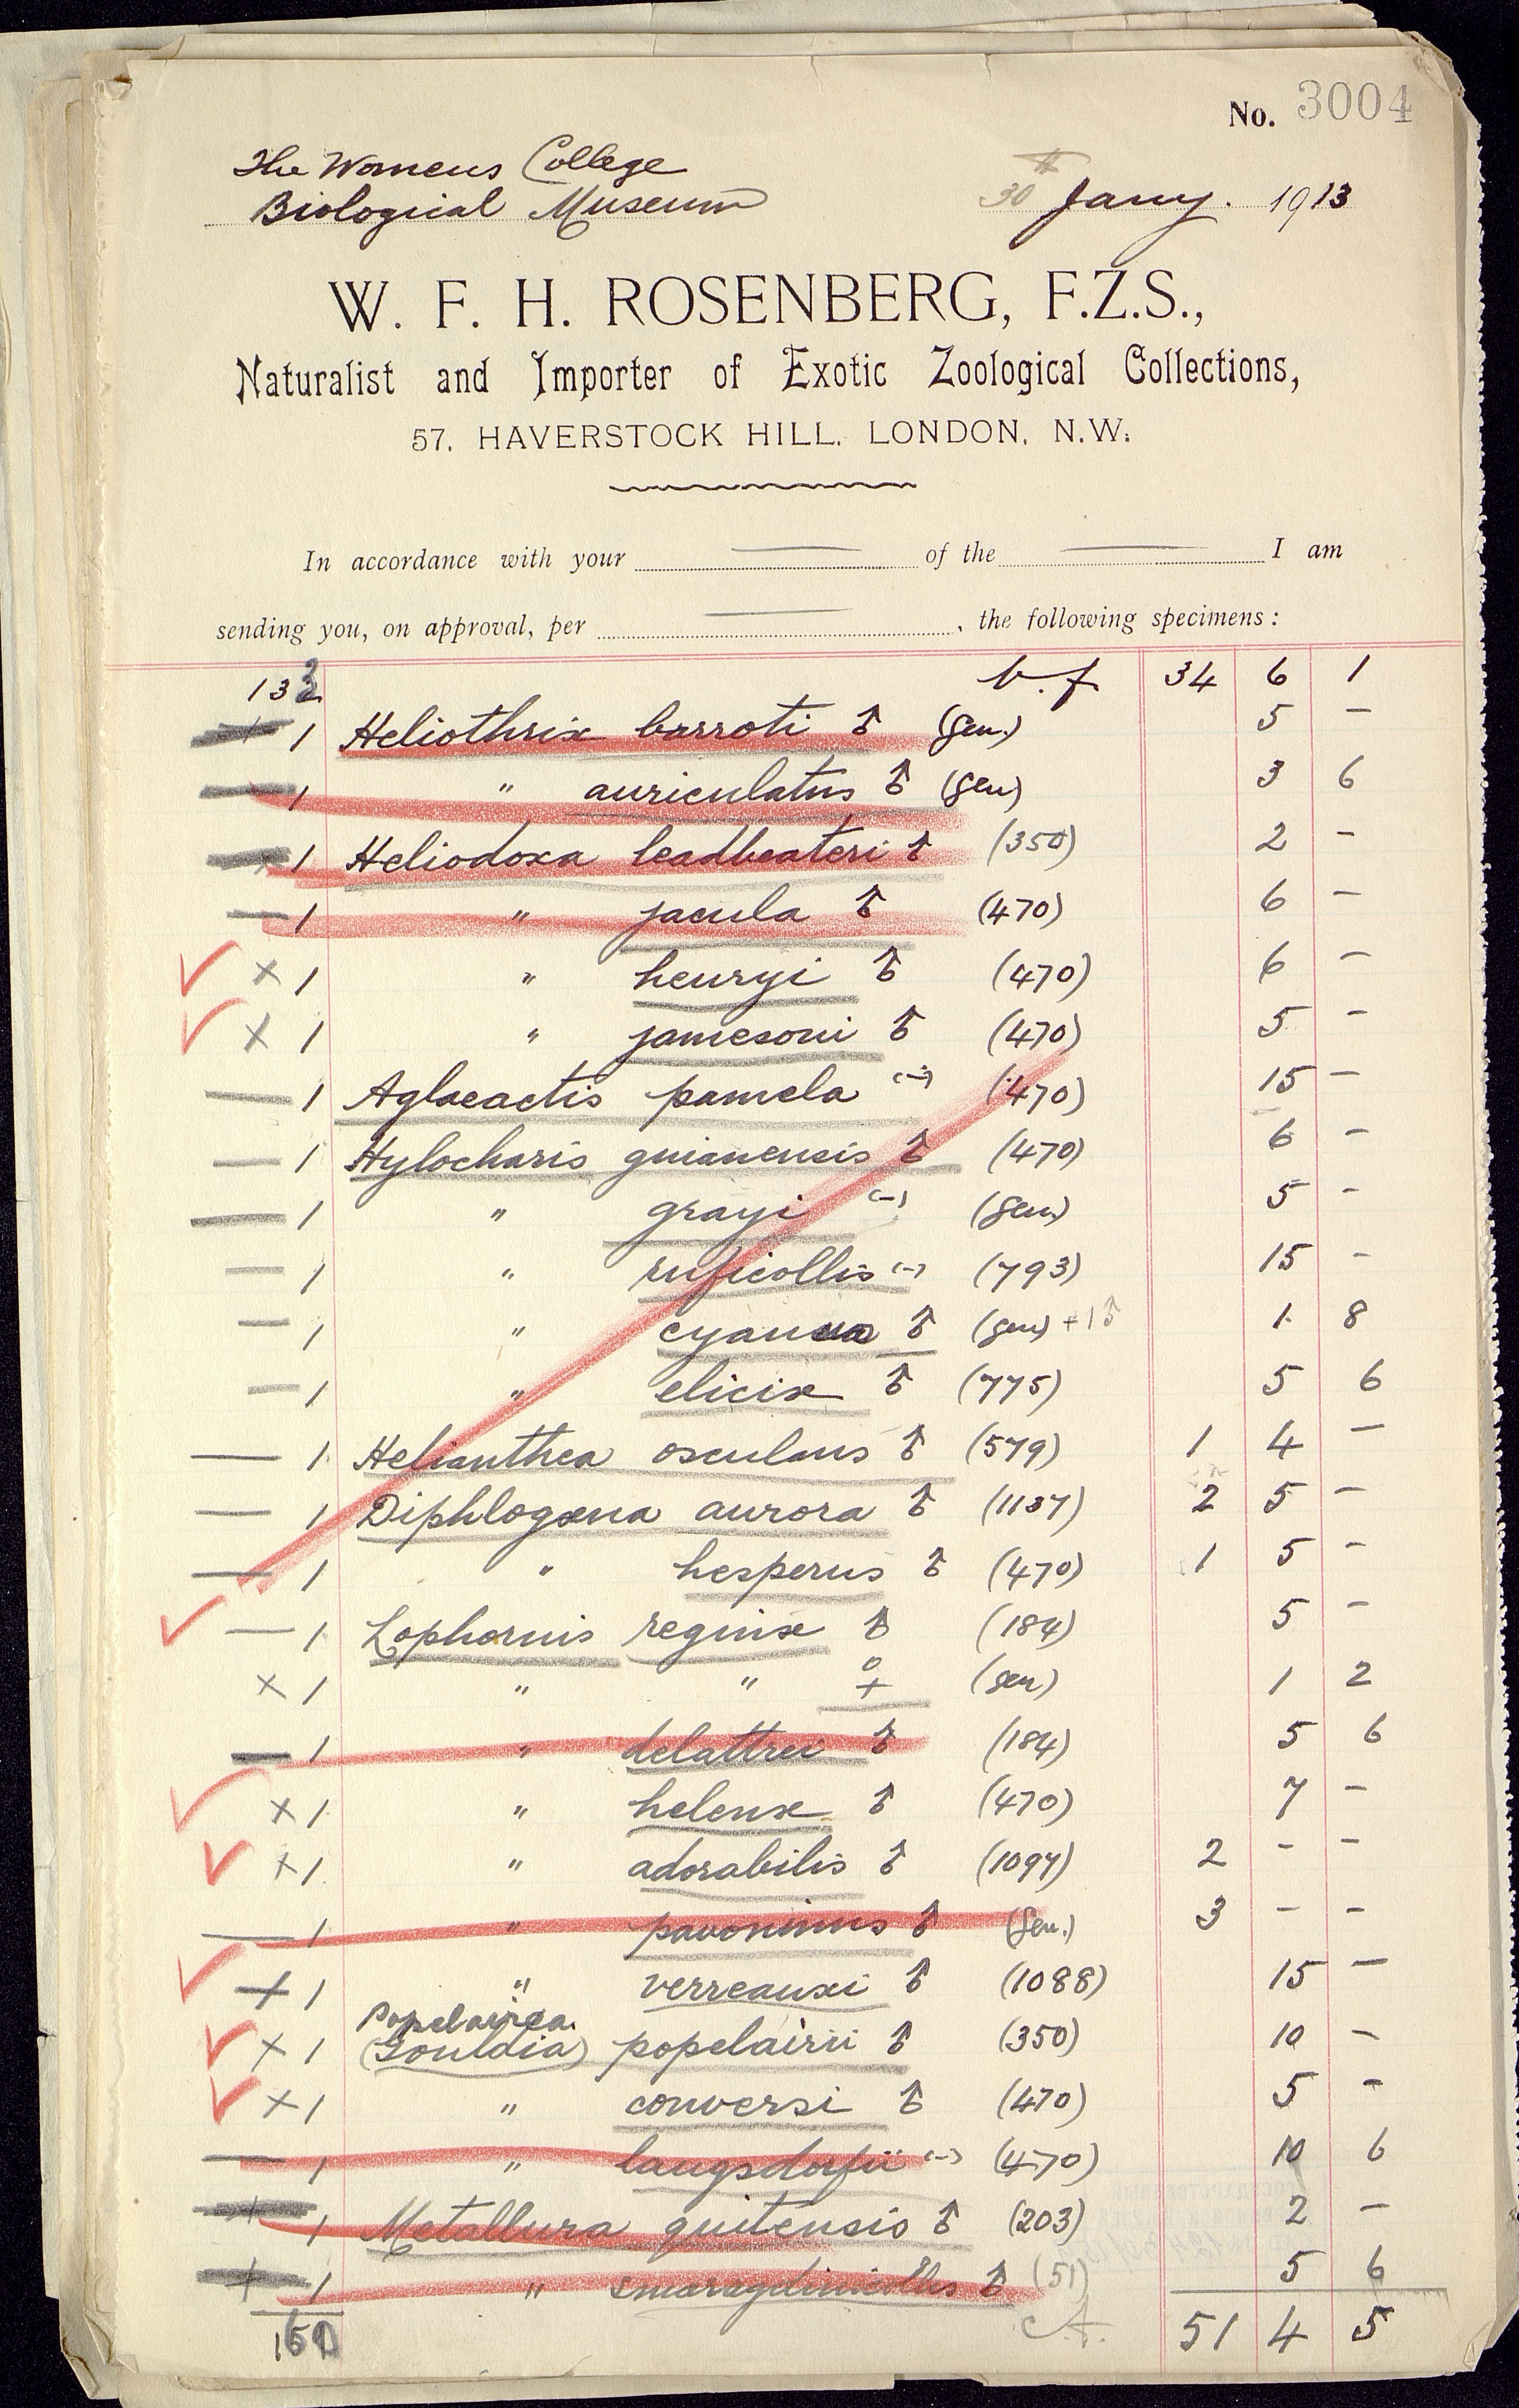 No. 3004
The Womens College
Biological Museum
30th Jany. 1913
W. F. H. ROSENBERG, F.Z.S.,
Naturalist and Importer of Exotic Zoological Collections,
57, HAVERSTOCK HILL, LONDON, N.W.
In accordance with your — of the — I am
sending you, on approval, per —, the following specimens:
133 b.f. 34 6 1
1 Heliothrix barroti ♂ (Gen.) 5 -
1 " auriculatus ♂ (Gen) 3 6
1 Heliodoxa leadbeateri ♂ (350) 2 -
1 " jacula ♂ (470) 6 -
✓ × 1 " henryi ♂ (470) 6 -
✓ × 1 " jamesoni ♂ (470) 5 -
— 1 Aglaeactis pamela (-) (470) 15 -
— 1 Hylocharis guianensis ♂ (470) 6 -
— 1 " grayi (-) (Gen) 5 -
— 1 " ruficollis (-) (793) 15 -
— 1 " cyanea ♂ (gen) +1♂ 1 8
— 1 " elicix ♂ (775) 5 6
— 1 Helianthea osculans ♂ (579) 1 4 -
— 1 Diphlogæna aurora ♂ (1137) 2 5 -
— 1 " hesperus ♂ (470) 1 5 -
✓ — 1 Lophornis reginæ ♂ (184) 5 -
× 1 " " ♀ (gen) 1 2
— 1 " delattrei ♂ (184) 5 6
✓ × 1 " helenæ ♂ (470) 7 -
✓ + 1 " adorabilis ♂ (1097) 2 - -
— 1 " pavoninus ♂ (Gen.) 3 - -
✓ + 1 " verreauxi ♂ (1088) 15 -
Popelairea
✓ × 1 (Gouldia) popelairii ♂ (350) 10 -
✓ × 1 " conversi ♂ (470) 5 -
— 1 " langsdorfii (-) (470) 10 6
+ 1 Metallura quitensis ♂ (203) 2 -
+ 1 " smaragdinicollis ♂ (51) 5 6
51 4 5